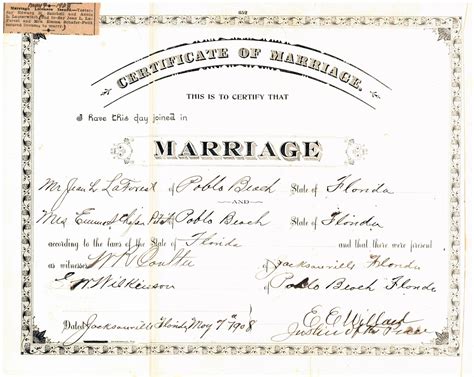 652
Marriage Licenses Issued
CERTIFICATE OF MARRIAGE.
THIS IS TO CERTIFY THAT
I have this day joined in
MARRIAGE
Mr. Jean L LaForest of Pablo Beach State of Florida
AND
Mrs of Pablo Beach State of Florida
according to the laws of the State of Florida and that there were present
as witnesses W. Coulter of Jacksonville Florida
E. W. Wilkinson of Pablo Beach Florida
Dated Jacksonville Florida May 7th 1908 E. E. Willard
Justice of the Peace